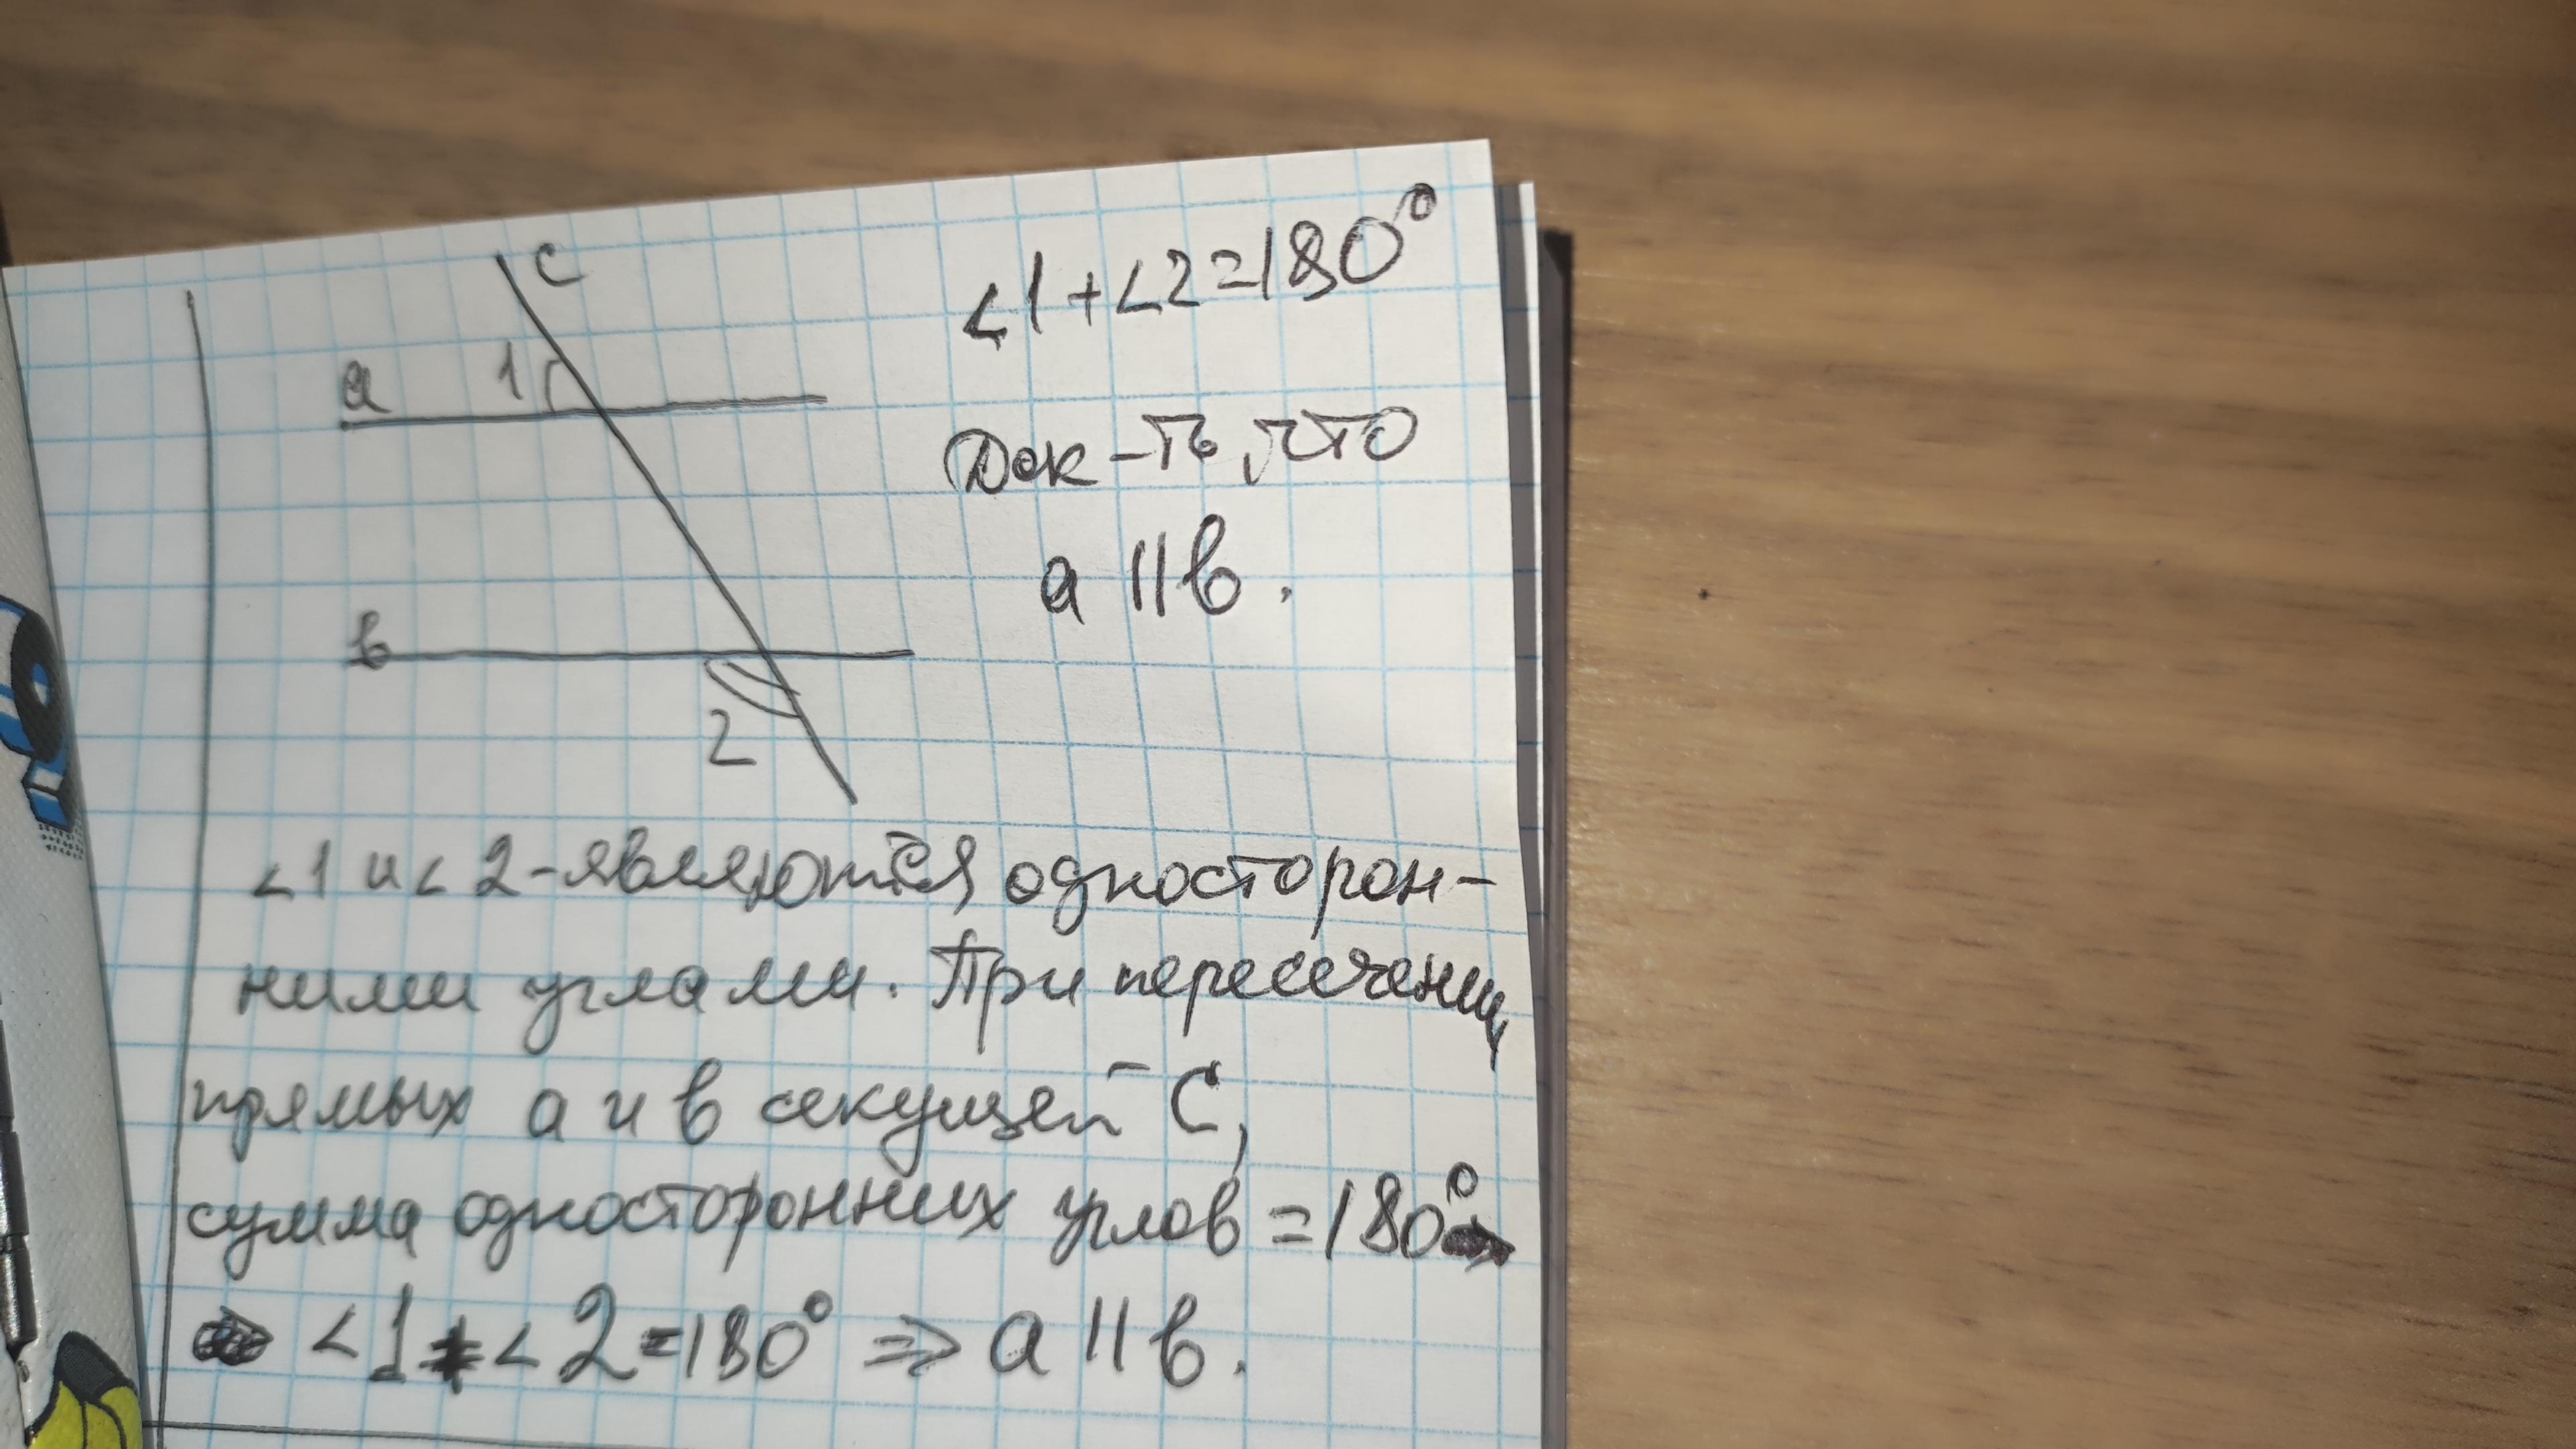 c
∠1+∠2=180°
a 1
Док-ть, что
a || b.
b
2
∠1 и ∠2 - являются односторон-
ними углами. При пересечении
прямых a и b секущей C,
сумма односторонних углов = 180°
∠1+∠2=180° ⇒ a || b.